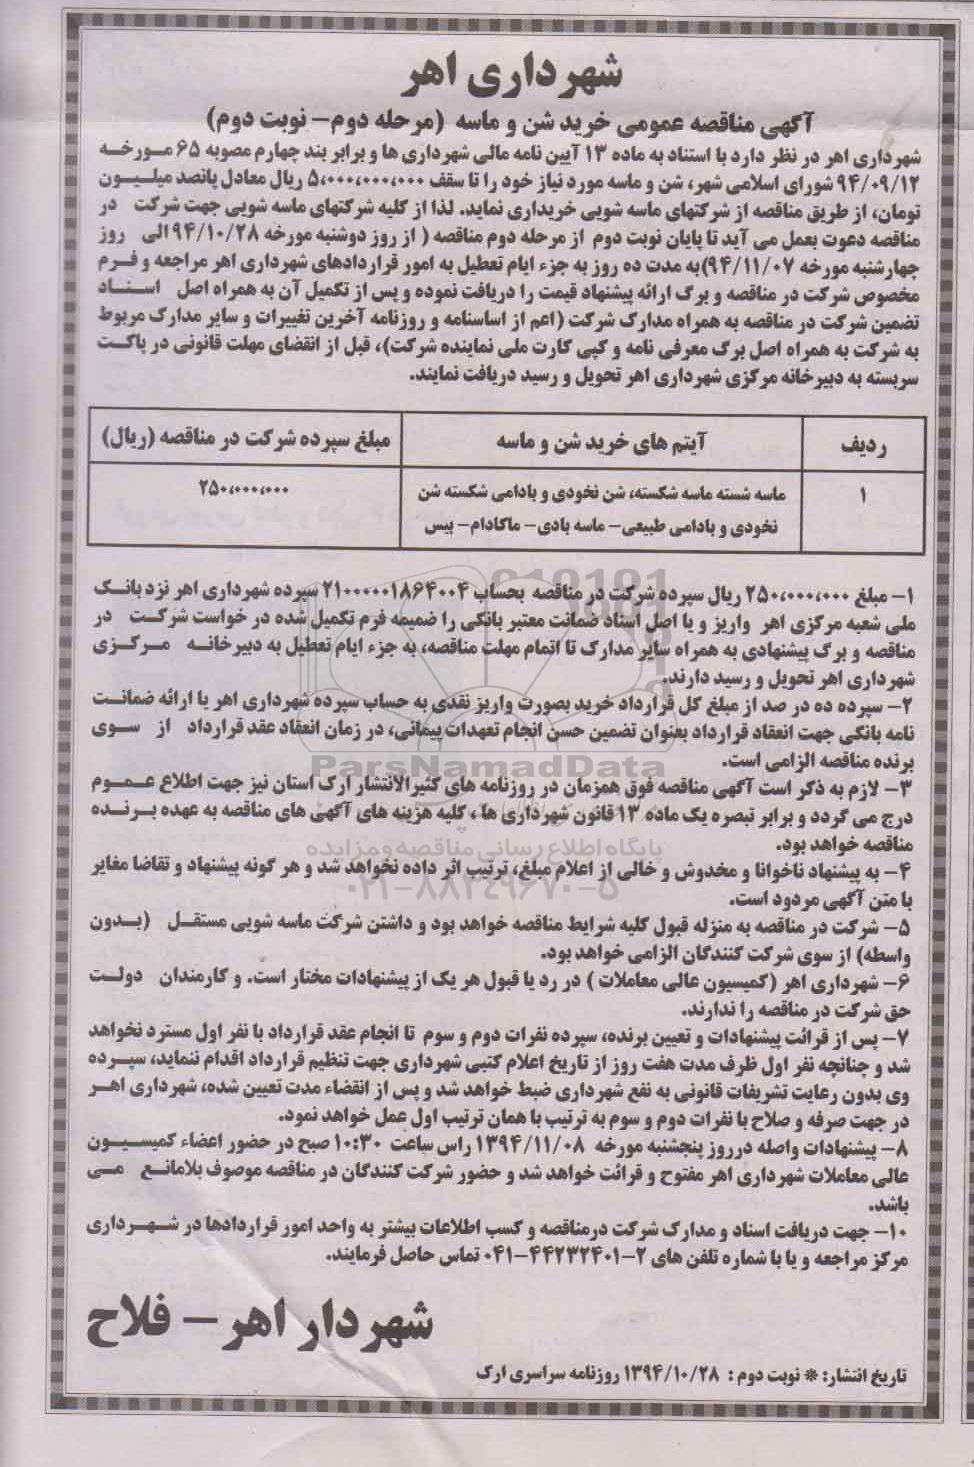 شهرداری اهر
آگهی مناقصه عمومی خرید شن و ماسه (مرحله دوم- نوبت دوم)
شهرداری اهر در نظر دارد با استناد به ماده ۱۳ آیین نامه مالی شهرداری ها و برابر بند چهارم مصوبه ۶۵ مورخه
۹۴/۰۹/۱۲ شورای اسلامی شهر، شن و ماسه مورد نیاز خود را تا سقف ۵،۰۰۰،۰۰۰،۰۰۰ ریال معادل پانصد میلیون
تومان، از طریق مناقصه از شرکتهای ماسه شویی خریداری نماید. لذا از کلیه شرکتهای ماسه شویی جهت شرکت در
مناقصه دعوت بعمل می آید تا پایان نوبت دوم از مرحله دوم مناقصه ( از روز دوشنبه مورخه ۹۴/۱۰/۲۸ الی روز
چهارشنبه مورخه ۹۴/۱۱/۰۷)به مدت ده روز به جزء ایام تعطیل به امور قراردادهای شهرداری اهر مراجعه و فرم
مخصوص شرکت در مناقصه و برگ ارائه پیشنهاد قیمت را دریافت نموده و پس از تکمیل آن به همراه اصل اسناد
تضمین شرکت در مناقصه به همراه مدارک شرکت (اعم از اساسنامه و روزنامه آخرین تغییرات و سایر مدارک مربوط
به شرکت به همراه اصل برگ معرفی نامه و کپی کارت ملی نماینده شرکت)، قبل از انقضای مهلت قانونی در پاکت
سربسته به دبیرخانه مرکزی شهرداری اهر تحویل و رسید دریافت نمایند.
ردیف آیتم های خرید شن و ماسه مبلغ سپرده شرکت در مناقصه (ریال)
۱ ماسه شسته ماسه شکسته، شن نخودی و بادامی شکسته شن ۲۵۰،۰۰۰،۰۰۰
نخودی و بادامی طبیعی- ماسه بادی- ماکادام- بیس
۱- مبلغ ۲۵۰،۰۰۰،۰۰۰ ریال سپرده شرکت در مناقصه بحساب ۲۱۰۰۰۰۰۱۸۶۴۰۰۴ سپرده شهرداری اهر نزد بانک
ملی شعبه مرکزی اهر واریز و یا اصل اسناد ضمانت معتبر بانکی را ضمیمه فرم تکمیل شده در خواست شرکت در
مناقصه و برگ پیشنهادی به همراه سایر مدارک تا اتمام مهلت مناقصه، به جزء ایام تعطیل به دبیرخانه مرکزی
شهرداری اهر تحویل و رسید دارند.
۲- سپرده ده در صد از مبلغ کل قرارداد خرید بصورت واریز نقدی به حساب سپرده شهرداری اهر یا ارائه ضمانت
نامه بانکی جهت انعقاد قرارداد بعنوان تضمین حسن انجام تعهدات پیمانی، در زمان انعقاد عقد قرارداد از سوی
برنده مناقصه الزامی است.
ParsNamadData
۳- لازم به ذکر است آگهی مناقصه فوق همزمان در روزنامه های کثیرالانتشار ارک استان نیز جهت اطلاع عموم
درج می گردد و برابر تبصره یک ماده ۱۳ قانون شهرداری ها ، کلیه هزینه های آگهی های مناقصه به عهده برنده
مناقصه خواهد بود.
پایگاه اطلاع رسانی مناقصه و مزایده
۴- به پیشنهاد ناخوانا و مخدوش و خالی از اعلام مبلغ، ترتیب اثر داده نخواهد شد و هر گونه پیشنهاد و تقاضا مغایر
با متن آگهی مردود است.
۰۲۱-۸۸۳۴۹۶۷۰-۵
۵- شرکت در مناقصه به منزله قبول کلیه شرایط مناقصه خواهد بود و داشتن شرکت ماسه شویی مستقل (بدون
واسطه) از سوی شرکت کنندگان الزامی خواهد بود.
۶- شهرداری اهر (کمیسیون عالی معاملات ) در رد یا قبول هر یک از پیشنهادات مختار است. و کارمندان دولت
حق شرکت در مناقصه را ندارند.
۷- پس از قرائت پیشنهادات و تعیین برنده، سپرده نفرات دوم و سوم تا انجام عقد قرارداد با نفر اول مسترد نخواهد
شد و چنانچه نفر اول ظرف مدت هفت روز از تاریخ اعلام کتبی شهرداری جهت تنظیم قرارداد اقدام ننماید، سپرده
وی بدون رعایت تشریفات قانونی به نفع شهرداری ضبط خواهد شد و پس از انقضاء مدت تعیین شده، شهرداری اهر
در جهت صرفه و صلاح با نفرات دوم و سوم به ترتیب با همان ترتیب اول عمل خواهد نمود.
۸- پیشنهادات واصله درروز پنجشنبه مورخه ۱۳۹۴/۱۱/۰۸ راس ساعت ۱۰:۳۰ صبح در حضور اعضاء کمیسیون
عالی معاملات شهرداری اهر مفتوح و قرائت خواهد شد و حضور شرکت کنندگان در مناقصه موصوف بلامانع می
باشد.
۱۰- جهت دریافت اسناد و مدارک شرکت درمناقصه و کسب اطلاعات بیشتر به واحد امور قراردادها در شهرداری
مرکز مراجعه و یا با شماره تلفن های ۲-۰۴۱-۴۴۲۳۲۴۰۱ تماس حاصل فرمایند.
شهردار اهر- فلاح
تاریخ انتشار: * نوبت دوم : ۱۳۹۴/۱۰/۲۸ روزنامه سراسری ارک